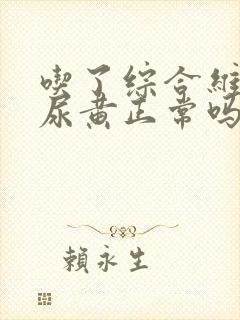 喫了綜合維
尿黄正常嗎
賴永生